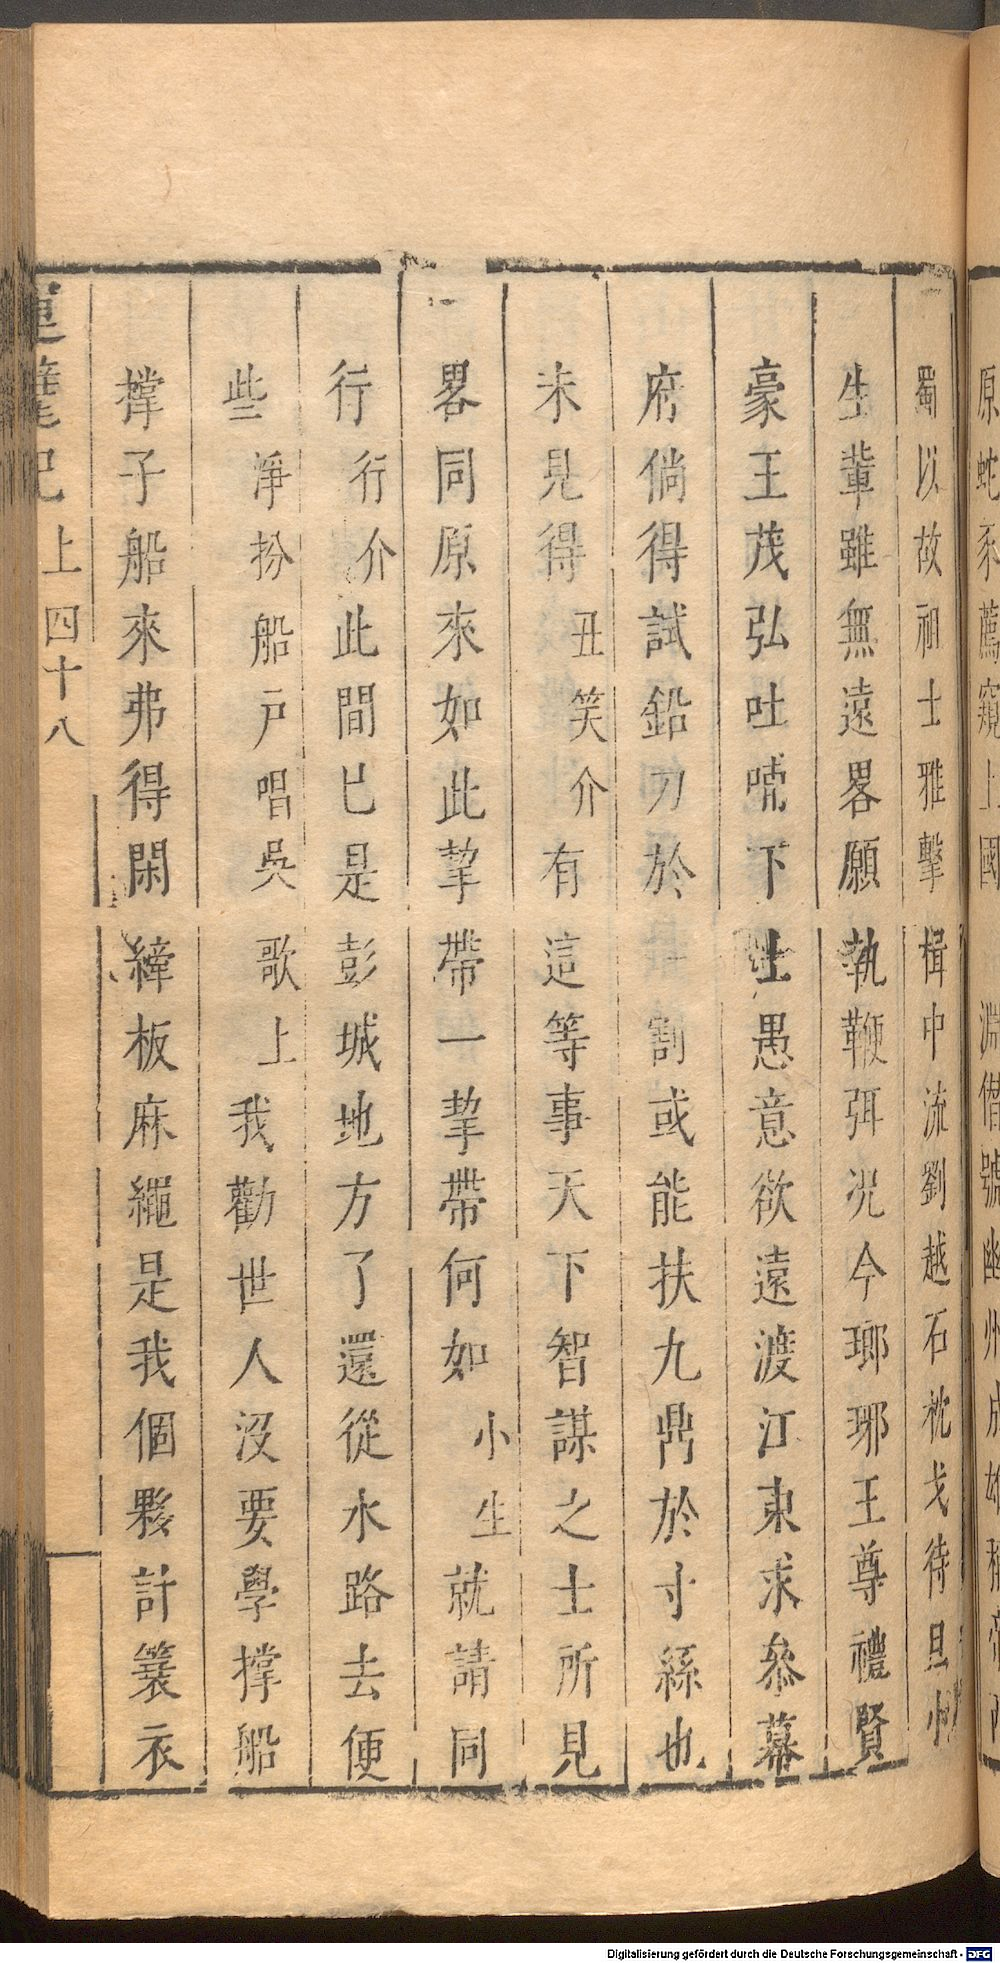 原蛇豕薦窺上國 淵僭號幽州成雄稱帝西
蜀以故祖士雅擊楫中流劉越石枕戈待旦小
生輩雖無遠畧願執鞭弭況今瑯琊王尊禮賢
豪王茂弘吐哺下士愚意欲遠渡江東求叅幕
府倘得試鉛刀於 割或能扶九鼎於寸絲也
未見得丑笑介有這等事天下智謀之士所見
畧同原來如此挈帶一挈帶何如小生就請同
行行介此間已是彭城地方了還從水路去便
些淨扮船戸唱吳歌上我勸世人沒要學撐船
撐子船來弗得閑縴板麻繩是我個夥計簑衣
運甓記 上 四十八
Digitalisierung gefördert durch die Deutsche Forschungsgemeinschaft - DFG